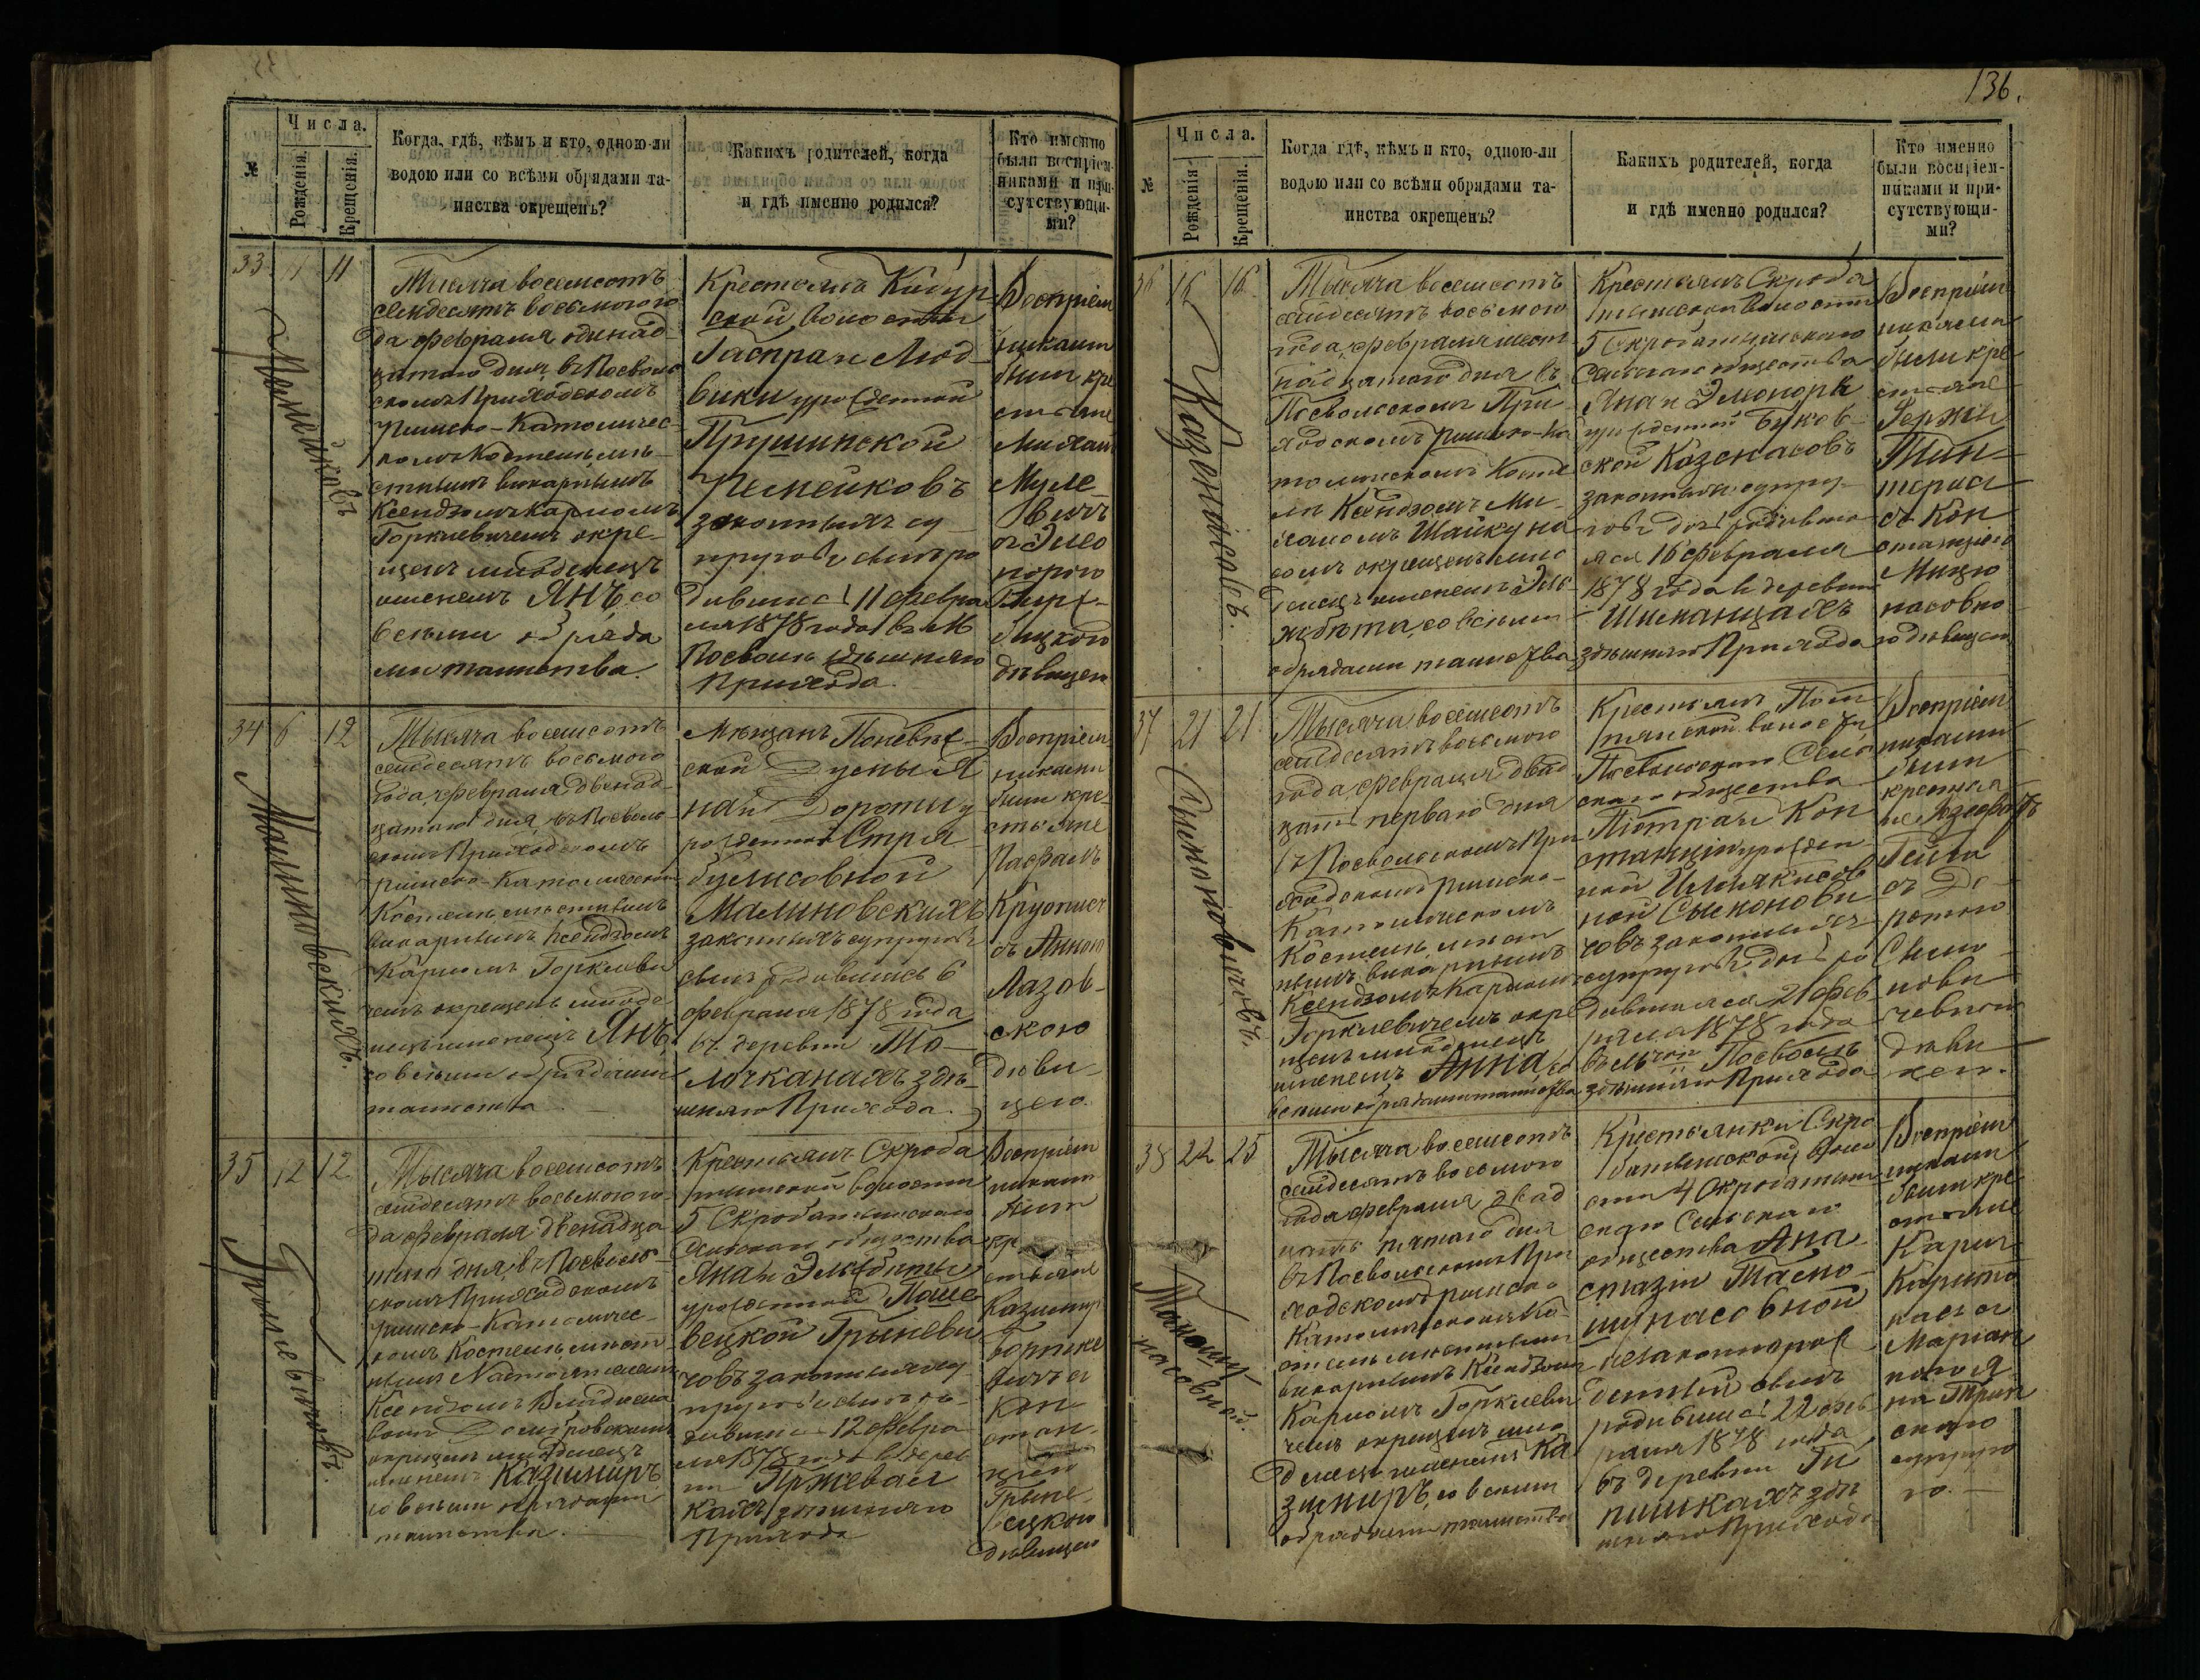 136.
№
Числа.
Рожденія.
Крещенія.
Когда, гдѣ, кѣмъ и кто, одною-ли
водою или со всѣми обрядами та-
инства окрещенъ?
Какихъ родителей, когда
и гдѣ именно родился?
Кто именно
были воспріем-
никами и при-
сутствующи-
ми?
33 11 11
Тысяча восемсотъ
семдесятъ восьмого го
да февраля одинад-
цатого дня, въ Посволь
скомъ Приходскомъ
Римско-Католичес-
комъ Костелѣ мѣ-
стнымъ викарнымъ
Ксендзомъ Карломъ
Горкиевичемъ окре-
щенъ младенецъ
именемъ ЯНЪ, со
всѣми обряда
ми таинства.
Крестьянъ
ской волости
Гаспра и Люд-
вики урожденной
Прушинской
законныхъ су-
пруговъ сынъ ро
дившійся 11 февра
ля 1878 года въ М
Посволѣ здѣшняго
Прихода.
Воспріем
никами
были кре
стьяне
Михаил
Муле
вичъ
съ Элео
норою
дѣвицею
34 6 12
Малиновскихъ.
Тысяча восемсотъ
семдесятъ восьмого
года, февраля двенад-
цатаго дня, въ Посволь
скомъ Приходскомъ
Римско-Католическом
Костелѣ мѣстнымъ
викарнымъ Ксендзомъ
Карломъ Горкиеви
чемъ окрещенъ младе
нецъ именемъ ЯНЪ,
со всѣми обрядами
таинства.
Мѣщанъ Поневѣж-
ской Думы Я
на и Дороты у
рожденной Стра
Малиновскихъ
законныхъ супруговъ
сынъ родившійсь 6
февраля 1878 года
въ деревни То-
лочканахъ здѣ-
шняго Прихода.
Воспріем
никами
были кре
стьяне
Рафалъ
Круописъ
съ Анною
Лазов-
скою
дѣви-
цею.
35 12 12
Гриневичовъ.
Тысяча восемсотъ
семдесятъ восьмого го
да февраля двенадца
таго дня, въ Посволь-
скомъ Приходскомъ
Римско-Католичес-
комъ Костелѣ мѣст
нымъ Настоятелемъ
Ксендзомъ Владисла
вомъ Домбровскимъ
окрещенъ младенецъ
именемъ Казимиръ
со всѣми обрядами
таинства.
Крестьянъ Скроба
тишской волости
5 Скробатишскаго
Сельскаго общества
Яна и Эльжбеты
урожденной Паше
вецкой Грыневи
човъ законныхъ су
пруговъ сынъ ро-
дившійс 12 февра
ля 1878 года въ дерев
ни Пржевал
кахъ здѣшняго
Прихода
Воспріем
никами
были
кр
стьяне
Казимир
съ
Кон-
стан-
цію
Грыне
вецкою
дѣвицею
№
Числа.
Рожденія.
Крещенія.
Когда гдѣ, кѣмъ и кто, одною-ли
водою или со всѣми обрядами та-
инства окрещенъ?
Какихъ родителей, когда
и гдѣ именно родился?
Кто именно
были воспріем-
никами и при-
сутствующи-
ми?
36 16 16
Тысяча восемсотъ
семдесятъ восьмого
года, февраля шест
надцатаго дня въ
Посвольскомъ При
ходскомъ Римско-Ка
толическомъ Косте
лѣ Ксендзомъ Ми-
халомъ Шайкуна
сомъ окрещенъ мла
денецъ именемъ Эль
жбѣта, со всѣми
обрядами таинства
Крестьянъ Скроба
тишской Волости
5 Скробатишскаго
Сельскаго общества
Яна и Элеоноры
урожденной Буков-
ской
законныхъ супру-
говъ дочь родивша
яся 16 февраля
1878 года въ деревни
здѣшняго Прихода
Воспріем
никами
были кре
стьяне
съ Кон
станціею
дѣвицею
37 21 21
Симоновичовъ.
Тысяча восемсотъ
семдесятъ восьмого
года февраля двад
цать перваго дня
въ Посвольскомъ При
ходскомъ Римско-
Католическомъ
Костелѣ мѣст
нымъ викарнымъ
Ксендзомъ Карломъ
Горкиевичемъ окре
щенъ младенецъ
именемъ Анна, со
всѣми обрядами таинства
Крестьянъ
волости
Посвольскаго Сель
скаго общества
Піотра и Кон
станціи урожден
ной
Сымонови
човъ законныхъ
супруговъ дочь ро
дившаяся 21 фев
раля 1878 года
въ мѣст Посволѣ
здѣшняго Прихода
Воспріем
никами
были
крестья
не Юзефъ
съ До
ротою
Симо
нови
чевною
дѣви
цею.
38 22 25
Тысяча восемсотъ
семдесятъ восьмого
года февраля двад
цать пятаго дня
въ Посвольскомъ При
ходскомъ Римско
Католическомъ Ко-
стелѣ мѣстнымъ
викарнымъ Ксендзомъ
Карломъ Горкиеви
чемъ окрещенъ мла
денецъ именемъ Ка
зимиръ, со всѣми
обрядами таинства
Крестьянки Скро
батишской Воло
сти 4 Скробатиш
скаго Сельскаго
общества Ана
стазіи
незаконнорож
денный сынъ
родившійс 22 фев
раля 1878 года
въ деревни
здѣ
шняго Прихода
Воспріем
никами
были кре
стьяне
Маріан
ною
супру
го.